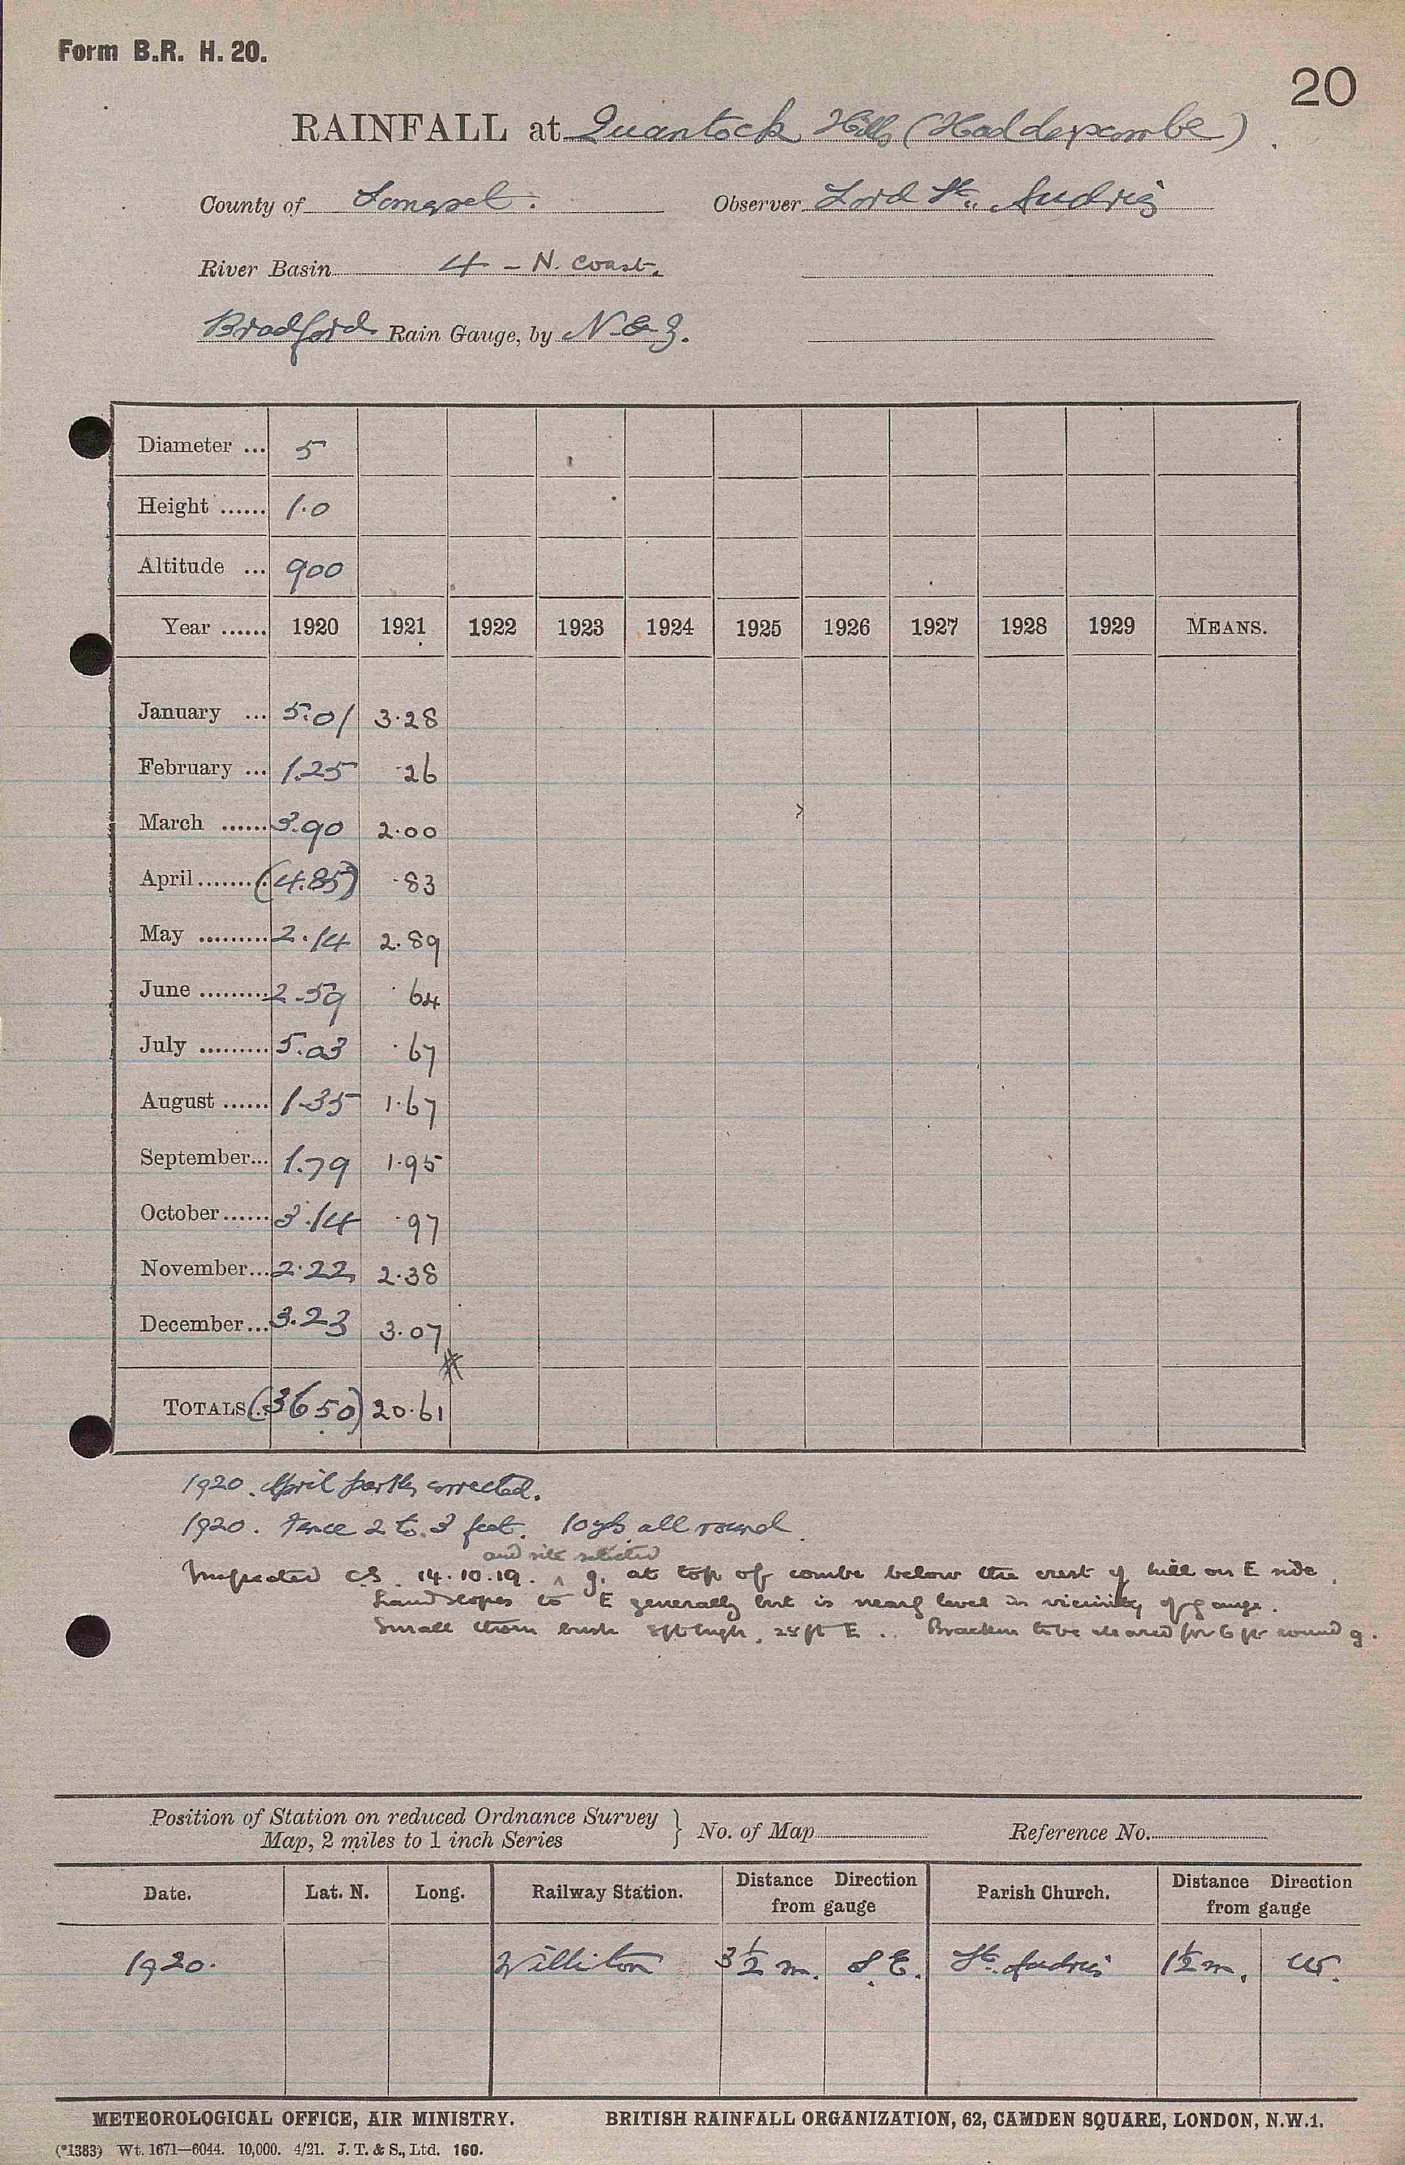 Form B.R. H. 20.
20
RAINFALL at Quantock Hills (Haddescombe)
County of Somerset. Observer Lord St. Audries
River Basin 4 - N. Coast.
Bradford Rain Gauge, by N & Z.
Diameter ... 5
Height ...... 1.0
Altitude ... 900
Year ...... 1920 1921 1922 1923 1924 1925 1926 1927 1928 1929 MEANS.
January ... 5.01 3.28
February ... 1.25 .26
March ...... 3.90 2.00
April ........ (4.85) .83
May ......... 2.14 2.89
June ......... 2.59 .64
July ......... 5.03 .67
August ...... 1.35 1.67
September... 1.79 1.95
October...... 3.14 .97
November... 2.22 2.38
December... 3.23 3.07
TOTALS... (36 50) 20.61 #
1920. April partly corrected.
1920. Fence 2 to 3 feet. 10 yds all round.
and site selected
Inspected C.S. 14.10.19. ^ g. at top of combe below the crest of hill on E side.
Land slopes to E generally but is nearly level in vicinity of gauge.
Small thorn bush 8ft high, 28 ft E. Bracken to be cleared for 6 ft round g.
Position of Station on reduced Ordnance Survey
Map, 2 miles to 1 inch Series } No. of Map Reference No.
Date. Lat. N. Long. Railway Station. Distance Direction from gauge Parish Church. Distance Direction from gauge
1920. Williton 3½ m. S.E. St. Audries 1½ m. W.
METEOROLOGICAL OFFICE, AIR MINISTRY. BRITISH RAINFALL ORGANIZATION, 62, CAMDEN SQUARE, LONDON, N.W.1.
(*1383) Wt. 1671—6044. 10,000. 4/21. J. T. & S., Ltd. 160.